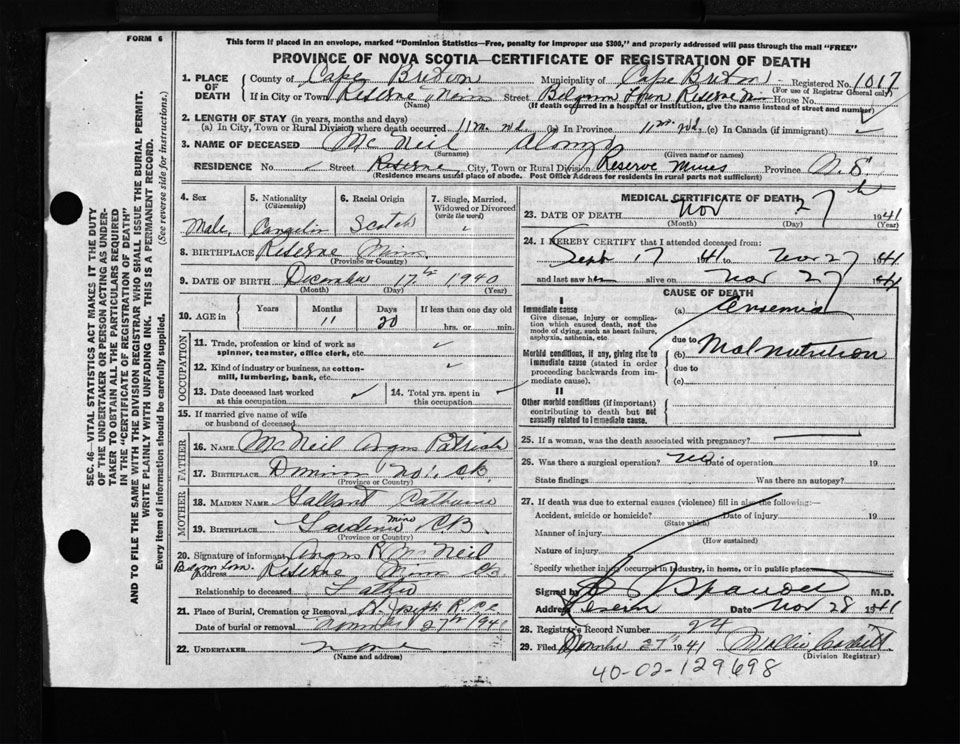 FORM 6
This form if placed in an envelope, marked "Dominion Statistics—Free, penalty for improper use $300," and properly addressed will pass through the mail "FREE"
PROVINCE OF NOVA SCOTIA—CERTIFICATE OF REGISTRATION OF DEATH
SEC. 46—VITAL STATISTICS ACT MAKES IT THE DUTY
OF THE UNDERTAKER OR PERSON ACTING AS UNDER-
TAKER TO OBTAIN ALL THE PARTICULARS REQUIRED
IN THE "CERTIFICATE OF REGISTRATION OF DEATH"
AND TO FILE THE SAME WITH THE DIVISION REGISTRAR WHO SHALL ISSUE THE BURIAL PERMIT.
WRITE PLAINLY WITH UNFADING INK. THIS IS A PERMANENT RECORD.
Every item of information should be carefully supplied. (See reverse side for instructions.)
1. PLACE OF DEATH County of Cape Breton Municipality of Cape Breton Registered No. 1017
(For use of Registrar General only)
If in City or Town Reserve Mines Street Belgium Town Reserve House No.
(Name) (If death occurred in a hospital or institution, give the name instead of street and number)
2. LENGTH OF STAY (in years, months and days)
(a) In City, Town or Rural Division where death occurred 11 m. (b) In Province 11 m. (c) In Canada (if immigrant) ✓
3. NAME OF DECEASED Mc Neil Alonzo
(Surname) (Given name or names)
RESIDENCE No. Street Reserve City, Town or Rural Division Reserve Mines Province N.S.
(Residence means usual place of abode. Post Office Address for residents in rural parts not sufficient)
4. Sex Male
5. Nationality (Citizenship)
6. Racial Origin Scotch
7. Single, Married, Widowed or Divorced (write the word)
8. BIRTHPLACE Reserve Mines
(Province or Country)
9. DATE OF BIRTH December 17th 1940
(Month) (Day) (Year)
10. AGE in Years Months 11 Days 20 If less than one day old hrs. or min.
OCCUPATION
11. Trade, profession or kind of work as spinner, teamster, office clerk, etc. ✓
12. Kind of industry or business, as cotton-mill, lumbering, bank, etc. ✓
13. Date deceased last worked at this occupation ✓ 14. Total yrs. spent in this occupation
15. If married give name of wife or husband of deceased
FATHER
16. NAME McNeil Angus Patrick
17. BIRTHPLACE Dominion No. 1. C.B.
(Province or Country)
MOTHER
18. MAIDEN NAME Gallant Catherine
19. BIRTHPLACE Gardiner Mine CB
(Province or Country)
20. Signature of informant Angus P. McNeil
Address Belgium Town. Reserve Mines CB
Relationship to deceased Father
21. Place of Burial, Cremation or Removal St. Joseph
Date of burial or removal 27th 1941
22. UNDERTAKER none
(Name and address)
MEDICAL CERTIFICATE OF DEATH
23. DATE OF DEATH Nov 27 1941
(Month) (Day) (Year)
24. I HEREBY CERTIFY that I attended deceased from:
Sept 17 1941 to Nov 27 1941
and last saw h alive on Nov 27 1941
CAUSE OF DEATH
I
Immediate cause
Give disease, injury or complication which caused death, not the mode of dying, such as heart failure, asphyxia, asthenia, etc.
(a) Anaemia
due to
Morbid conditions, if any, giving rise to immediate cause (stated in order proceeding backwards from immediate cause).
(b) Malnutrition
due to
(c)
II
Other morbid conditions (if important) contributing to death but not causally related to immediate cause.
25. If a woman, was the death associated with pregnancy?
26. Was there a surgical operation? no Date of operation 19
State findings Was there an autopsy?
27. If death was due to external causes (violence) fill in also the following:—
Accident, suicide or homicide? Date of injury 19
(State which)
Manner of injury
(How sustained)
Nature of injury
Specify whether injury occurred in industry, in home, or in public place
Signed by M.D.
Address Reserve Date Nov 28 1941
28. Registrar's Record Number 24
29. Filed 27th 1941 Mollie
(Division Registrar)
40-02-129698